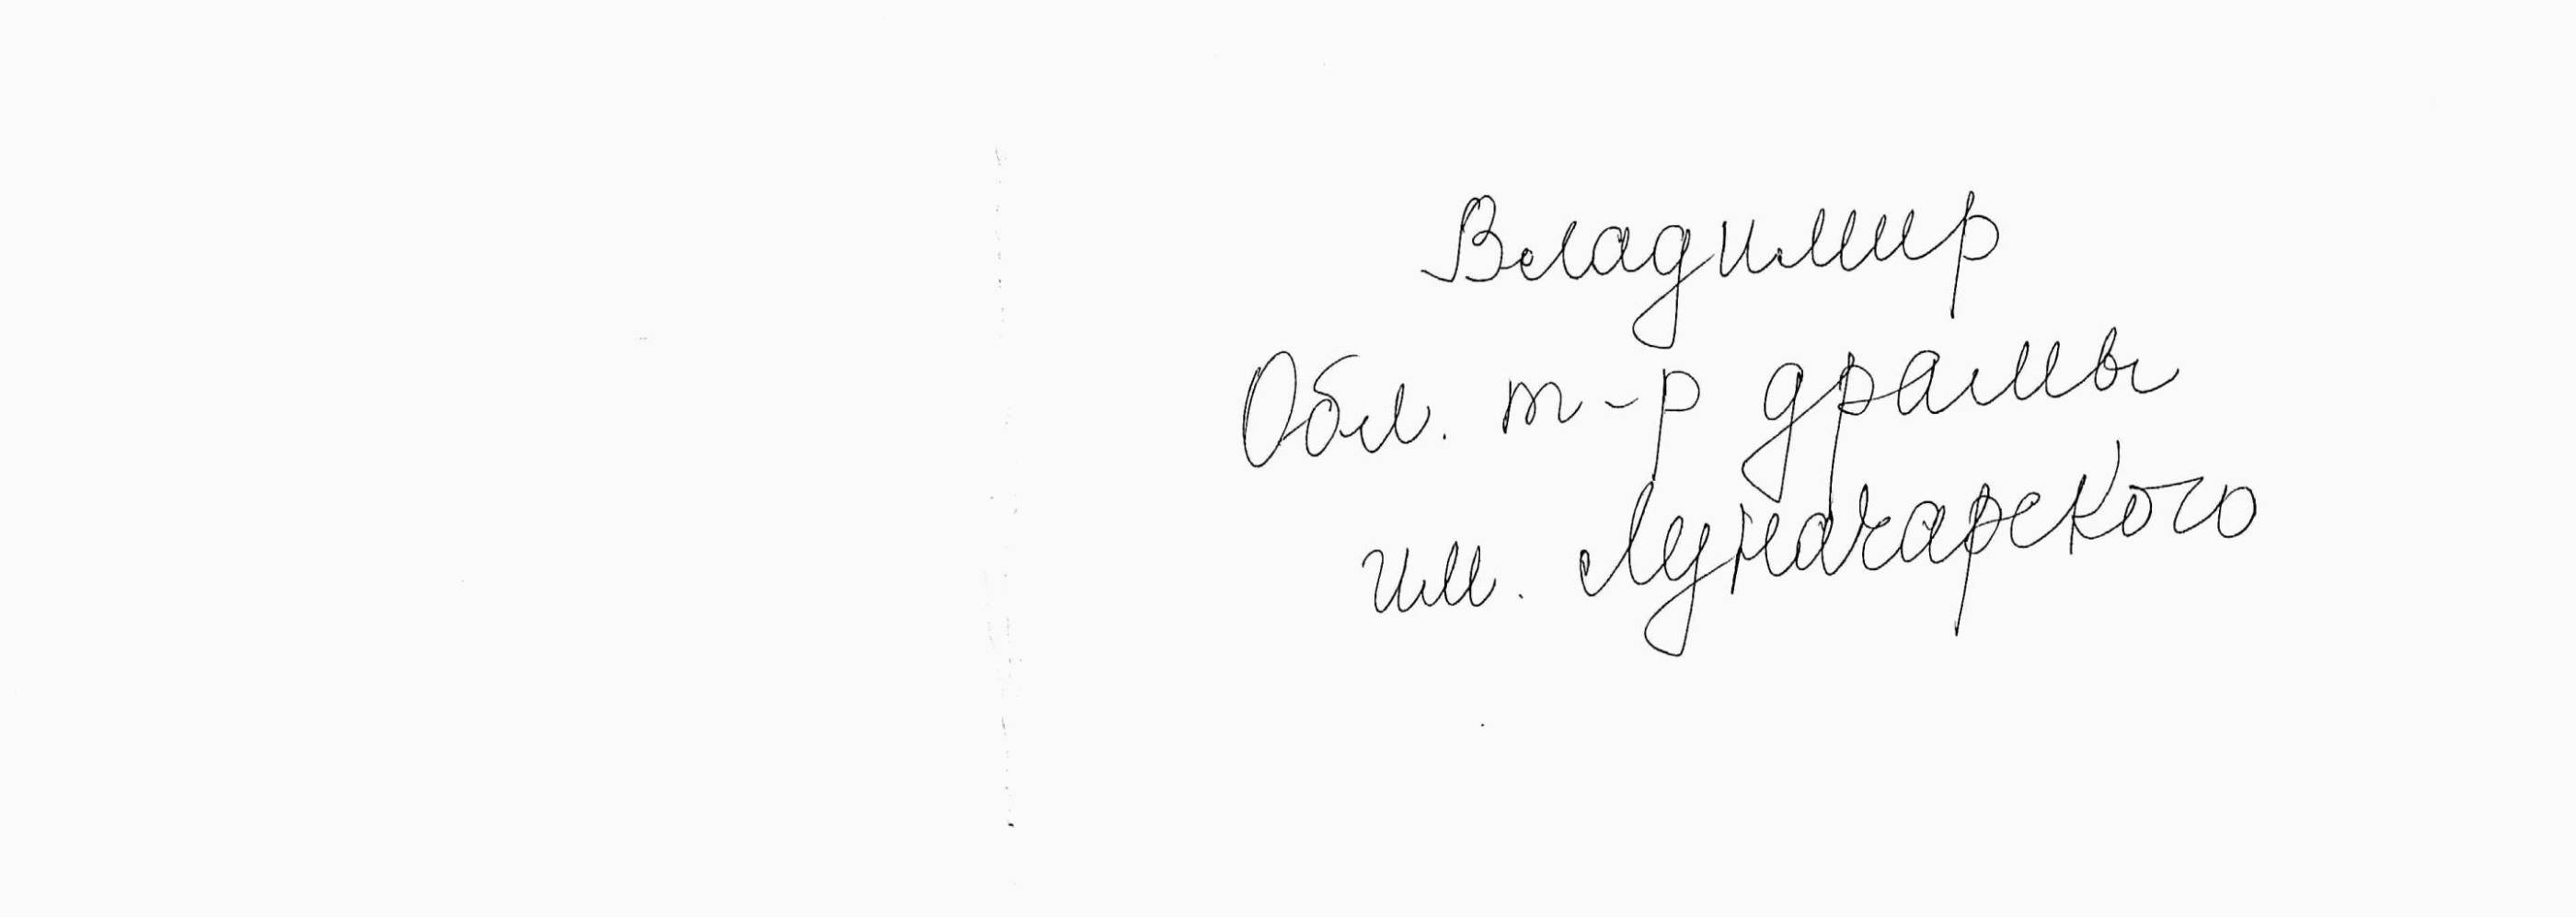 Владимир
Обл. т-р драмы
им. Луначарского